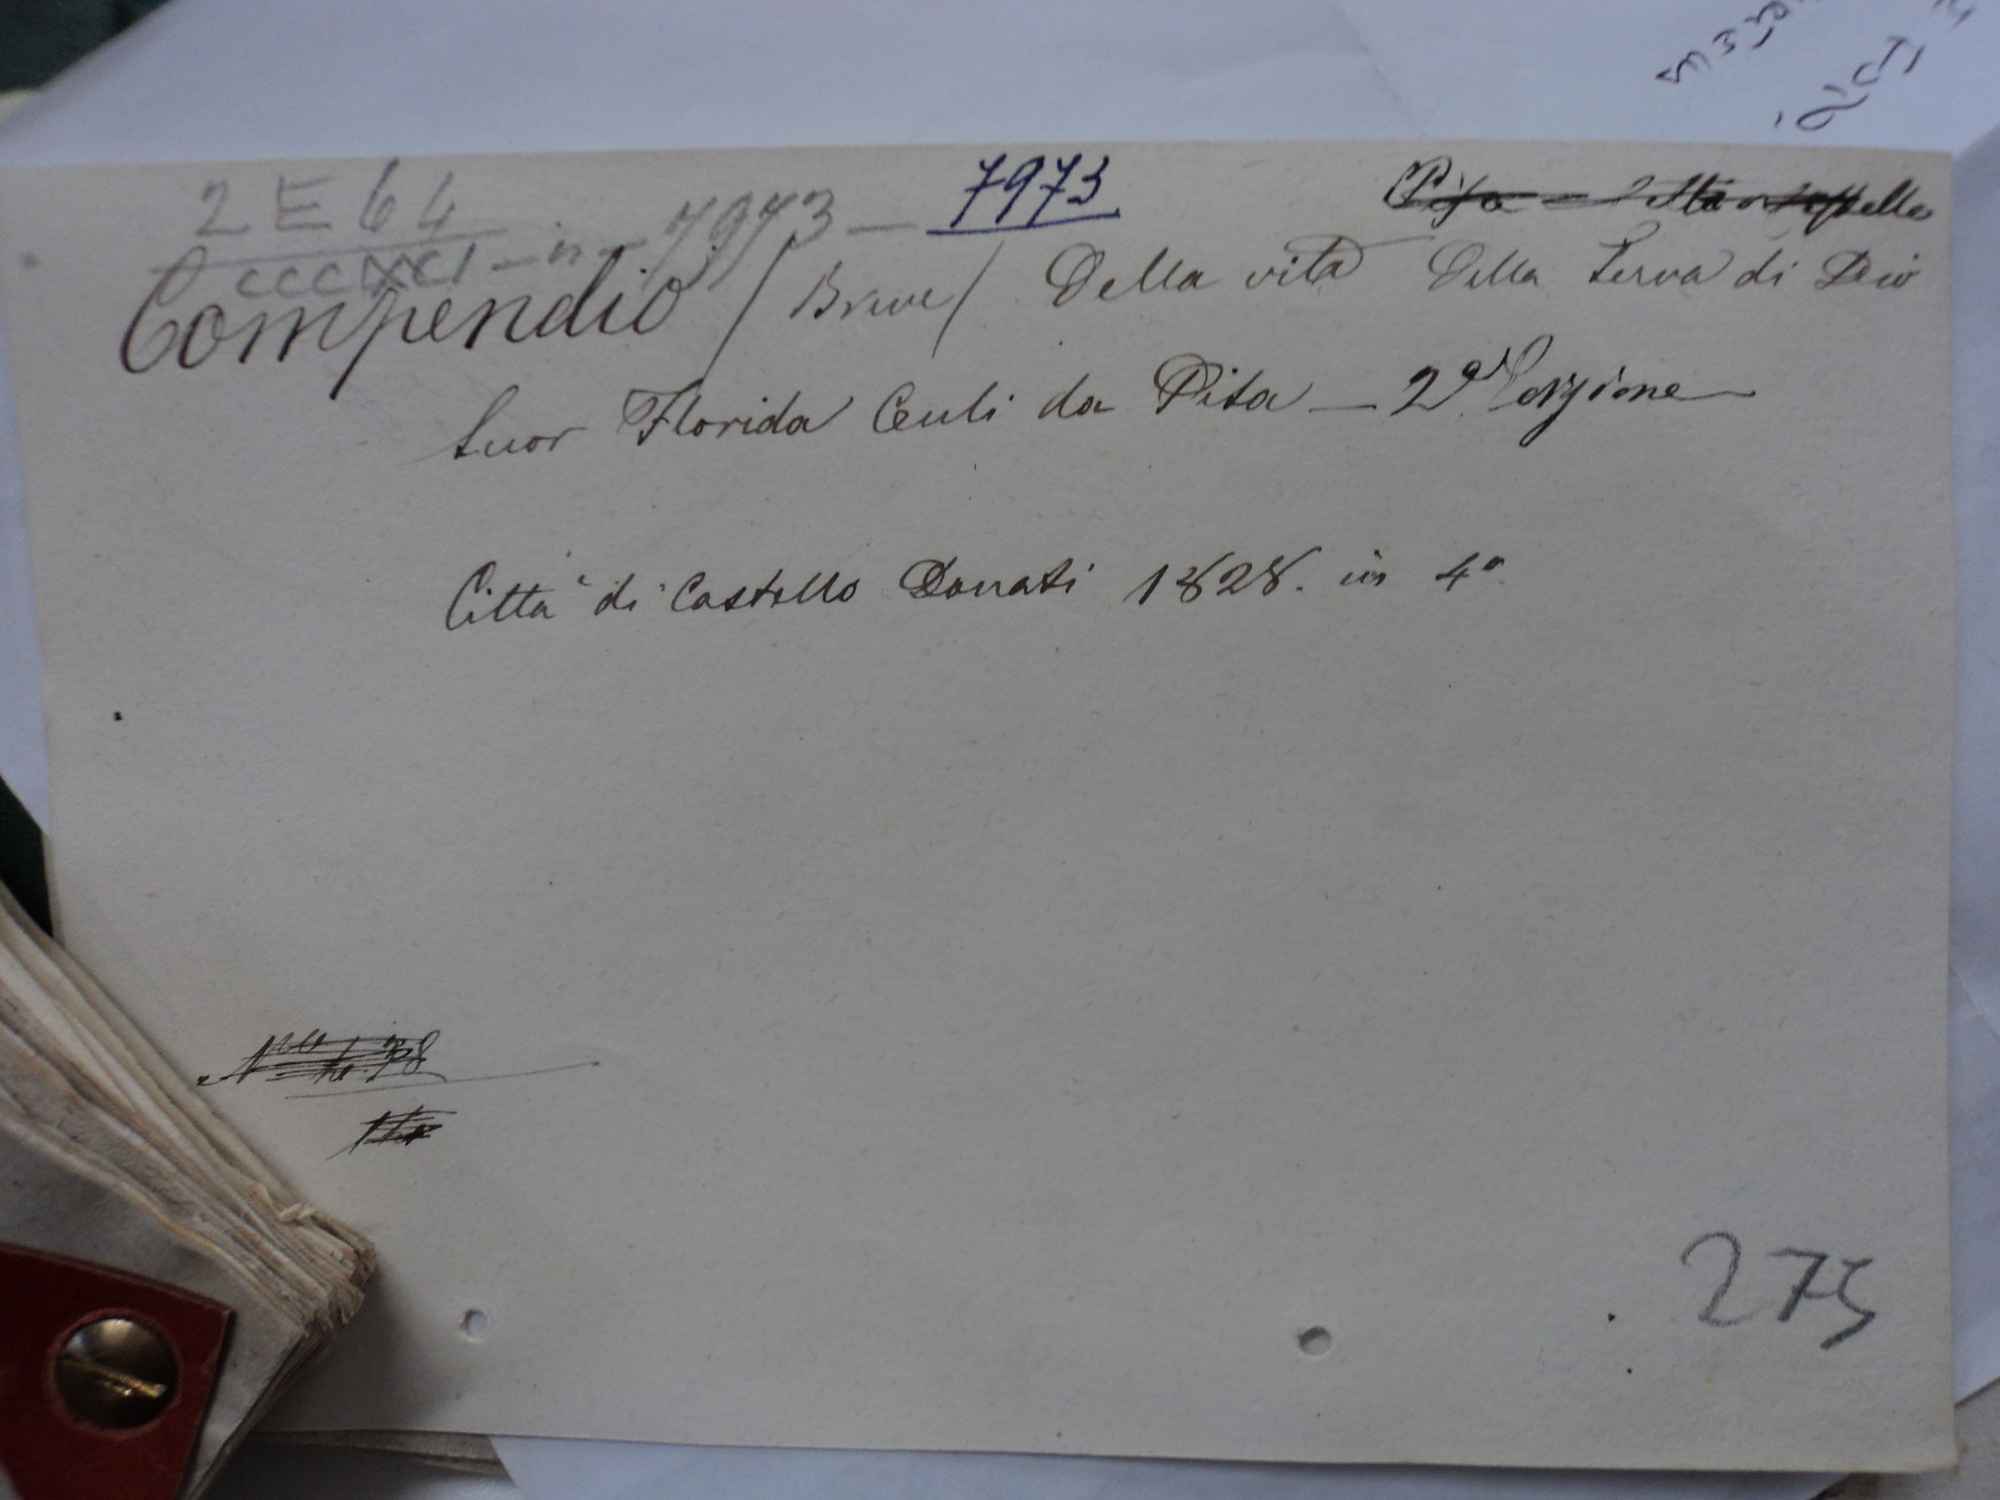 2 E 64
CCCXXCI - n - 7973 — 7973
Compendio / Breve / Della vita Della Serva di Dio
Suor Florida Ceuli da Pisa — 2ª Edizione
Città di Castello Donati 1828. in 4º
275